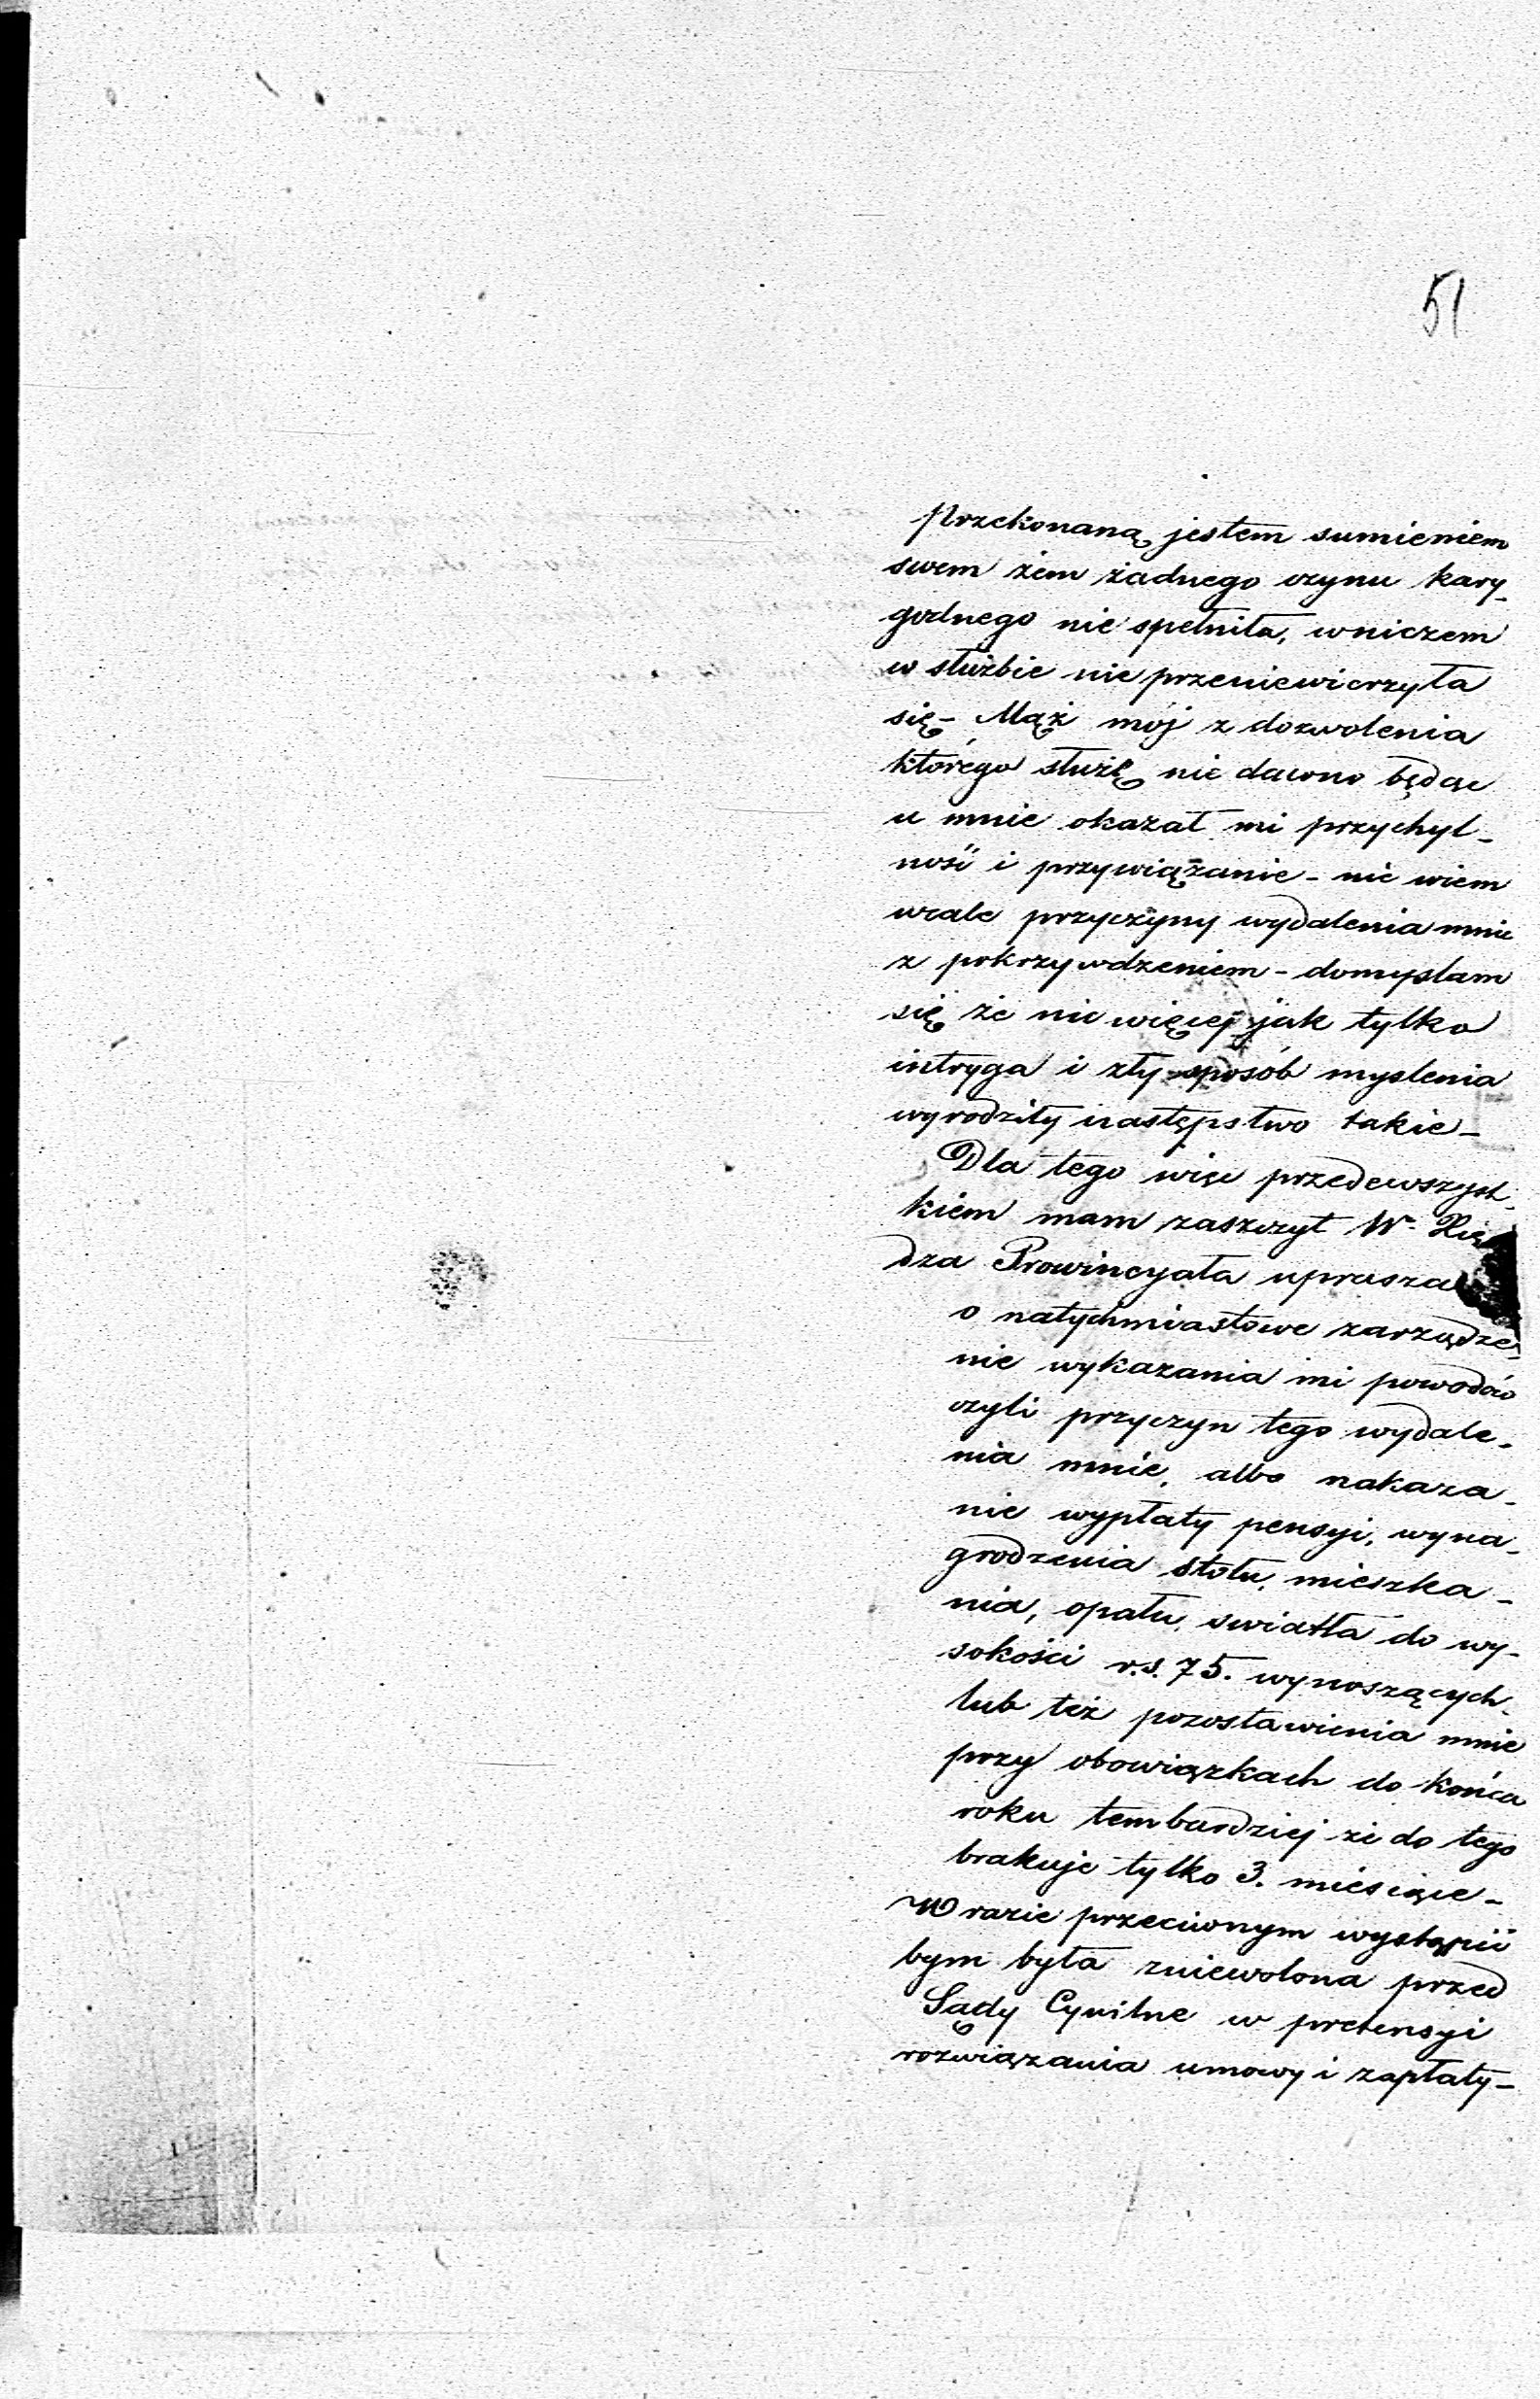 51
przekonaną jestem sumieniem
swem żem żadnego czynu kary-
godnego nie spełniła, wniczem
w służbie nie przeniewierzyła
się - Mąż mój z dozwolenia
którego służę nie dawno będąc
u mnie okazał mi przychyl-
ność i przywiązanie - nie wiem
wcale przyczyny wydalenia mnie
z pokrzywdzeniem - domyslam
się że nic więcej jak tylko
intryga i zły sposób myslenia
wyrodziły następstwo takie -
Dla tego więc przedewszyst-
kiem mam zaszczyt W. Xię
dza Prowincyała uprasza
o natychmiastowe zarządze-
nie wykazania mi powodów
czyli przyczyn tego wydale-
nia mnie, albo nakaza-
nie wypłaty pensyi, wyna-
grodzenia stołu, mieszka-
nia, opału, swiatła do wy-
sokości r.s. 75. wynoszących
lub też pozostawienia mnie
przy obowiązkach do końca
roku tembardziej że do tego
brakuje tylko 3. miesiące -
W razie przeciwnym wystąpić
bym była zniewolona przed
Sądy Cywilne w pretensyi
rozwiązania umowy i zapłaty -